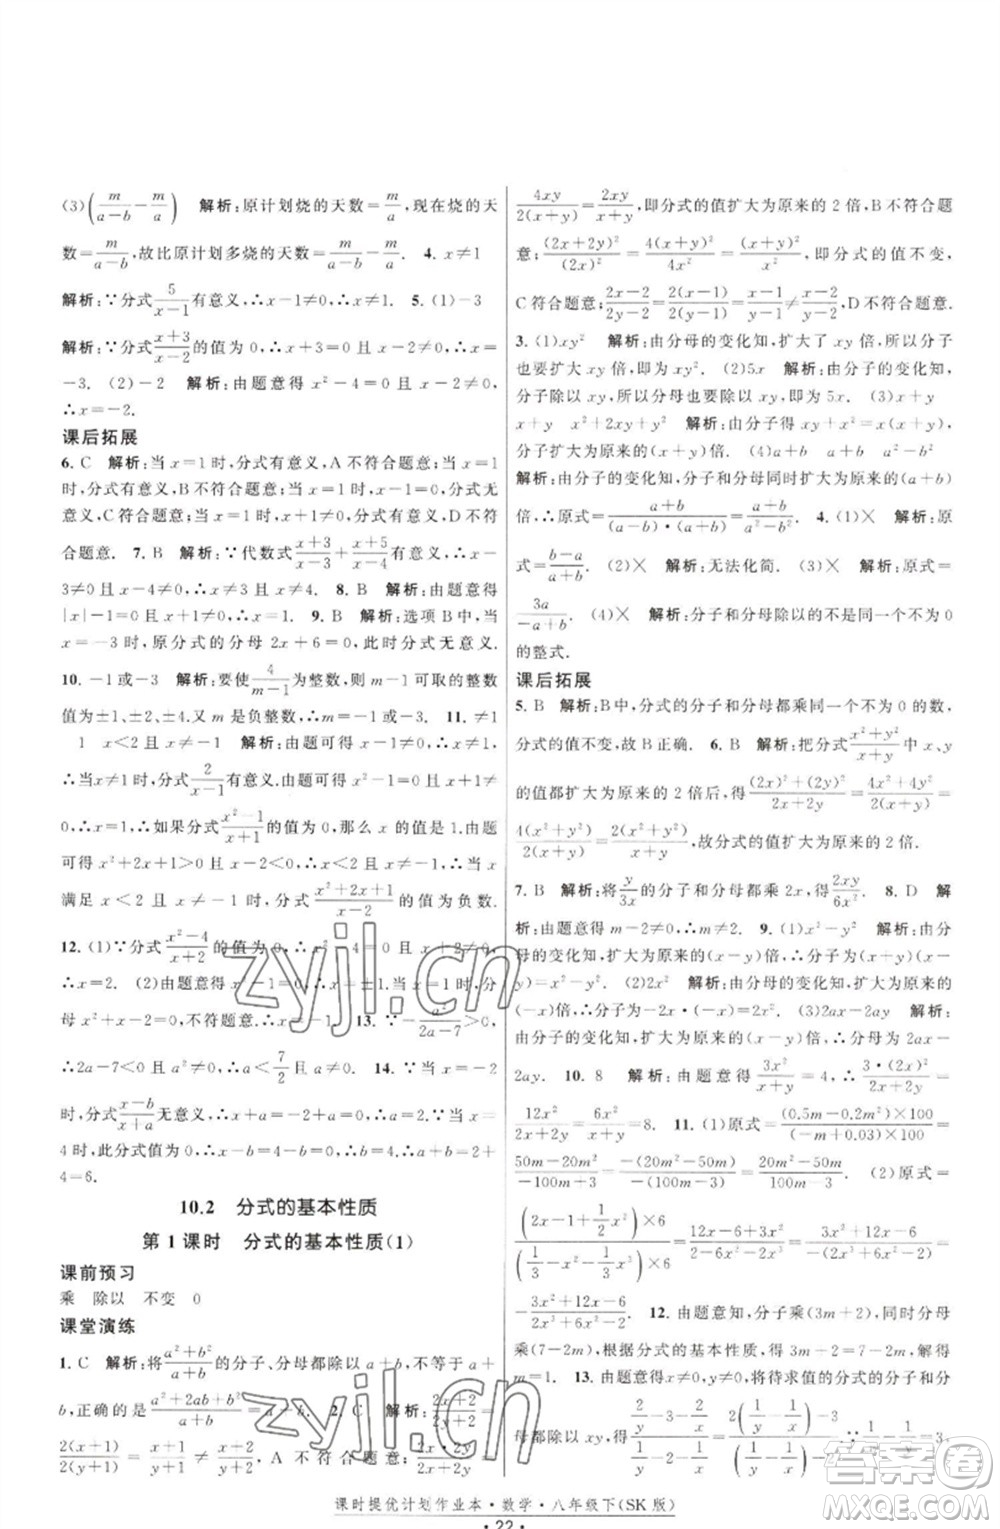 (3)(m/(a-b) - m/a) 解析:原计划烧的天数=m/a,现在烧的天
数=m/(a-b),故比原计划多烧的天数=m/(a-b)-m/a. 4. x≠1
解析:∵分式5/(x-1)有意义,∴x-1≠0,∴x≠1. 5. (1)-3
解析:∵分式(x+3)/(x-2)的值为0,∴x+3=0且x-2≠0,∴x=
-3. (2)-2 解析:由题意得x²-4=0且x-2≠0,
∴x=-2.
课后拓展
6. C 解析:当x=1时,分式有意义,A不符合题意;当x=
1时,分式有意义,B不符合题意;当x=1时,分式无
意义,C符合题意;当x=1时,分式有意义,D不符
合题意. 7. B 解析:∵代数式(x+3)/(x-3)÷(x+5)/(x-4)有意义,∴x-
3≠0且x-4≠0,∴x≠3且x≠4. 8. B 解析:由题意得
|x|-1=0且x+1≠0,∴x=1. 9. B 解析:选项B中,当
x=-3时,原分式的分母2x+6=0,此时分式无意义.
10. -1或-3 解析:要使4/(m-1)为整数,则m-1可取的整数
值为±1、±2、±4,又m是负整数,∴m=-1或-3. 11. ≠1
1 x<2且x≠1 解析:由题可得x-1≠0,∴x≠1,
∴当x≠1时,分式2/(x-1)有意义.由题可得x²-1=0且x+1≠
0,∴x=1,∴如果分式(x²-1)/(x+1)的值为0,那么x的值为1.由题
可得x²+2x+1>0且x-2<0,∴x<2且x≠-1,
∴当x<2且x≠-1时,分式(x²+2x+1)/(x-2)的值为负数.
12. (1)∵分式(x²-4)/(x+2)的值为0,∴x²-4=0且x+2≠0,
∴x=2. (2)当x²-1=0时,x=±1.当x=-1时,分
母x+1=0,不符题意,∴x=1. 13. ∵-a²/(2a-7)>0,
∴2a-7<0且a²≠0,∴a<7/2且a≠0. 14. ∵当x=2
时,分式(x-b)/(x+a)无意义,∴x+a=2+a=0,∴a=-2.∵x=
4时,此时分式值为0,∴x-b=4-b=0,∴b=4,∴a+2b=-2+2×
4=6.
10.2 分式的基本性质
第1课时 分式的基本性质(1)
课前预习
乘 除以 不变 0
课堂演练
1. C 解析:将(a²+b²)/(a+b)的分子、分母都除以a+b,不等于a+
b,正确的是(a²+2ab+b²)/(a+b)=a+b. 2. C 解析:(2x+2)/(2y+2)=
2(x+1)/2(y+1)=(x+1)/(y+1)≠x/y,A不符合题意;(2x·2y)/(2x+2y)=
4xy/2(x+y)=2xy/(x+y),即分式的值扩大为原来的2倍,B不符合题
意;(2x+2y)²/(2x)²=4(x+y)²/4x²=(x+y)²/x²,即分式的值不变,
C符合题意;(2x-2)/(2y-2)=2(x-1)/2(y-1)=(x-1)/(y-1)≠x/y,D不符合题意.
3. (1)xy² 解析:由分母的变化知,扩大了xy倍,∴分子
也要扩大xy倍,即为xy². (2)5x 解析:由分子的变化知,
分子除以xy,所以分母也要除以xy,即为5x. (3)x+y
x+y x²+xy x+y 解析:由分子得xy+x²=x(x+y),
分子扩大了(x+y)倍. (4)a+b a+b a²-b²
解析:由分子的变化知,分子和分母同时扩大为原来的(a+b)
倍,∴原式=(a+b)/((a-b)·(a+b))=(a+b)/(a²-b²). 4. (1)× 解析:原
式=(b-a)/(a+b). (2)× 解析:无法化简. (3)× 解析:原式=
3a/(-a+b). (4)× 解析:分子和分母除以的不是同一个不为0
的整式.
课后拓展
5. B 解析:分式的分子和分母同时乘一个不为0的数,
分式的值不变,故B正确. 6. B 解析:把分式(x²+y²)/(x+y)中x、y
的值都扩大为原来的2倍后,得((2x)²+(2y)²)/(2x+2y)=(4x²+4y²)/2(x+y)=
4(x²+y²)/2(x+y)=2(x²+y²)/(x+y),故分式的值扩大为原来的2倍.
7. B 解析:将y/3x的分子和分母都乘2x,得2xy/6x². 8. D 解
析:由题意得m-2≠0,∴m≠2. 9. (1)x²-y² 解析:由分
母的变化知,扩大为原来的(x-y)倍,∴分子为(x+y)(x-
y)=x²-y². (2)x²-xy 解析:由分子的变化知,扩大为原来的
(-x)倍,∴分子为-x(y-x)=x²-xy. (3)2ax-2ay 解析:
由分子的变化知,扩大为原来的(x-y)倍,∴分母为2a(x-y)=2ax-
2ay. 10. 8 解析:由题意得3x²/(x+y)=4,∴3·(2x)²/(2x+2y)=
12x²/2(x+y)=6x²/(x+y)=8. 11. (1)原式=(0.5m-0.2m²)×100/(-m+0.03)×100=
(50m-20m²)/(-100m+3)=-(20m²-50m)/-(100m-3)=(20m²-50m)/(100m-3). (2)原式=
12. 由题意知,分子乘(3m+2),同时分母
乘(7-2m),∴根据分式的基本性质得,3m+2=7-2m,解得
m=1. 13. ∵x≠0,y≠0,∴将待求值的分式的分子和分
课时提优计划作业本·数学·八年级下(SK版)
·22·
zyjl.cn
作业精灵